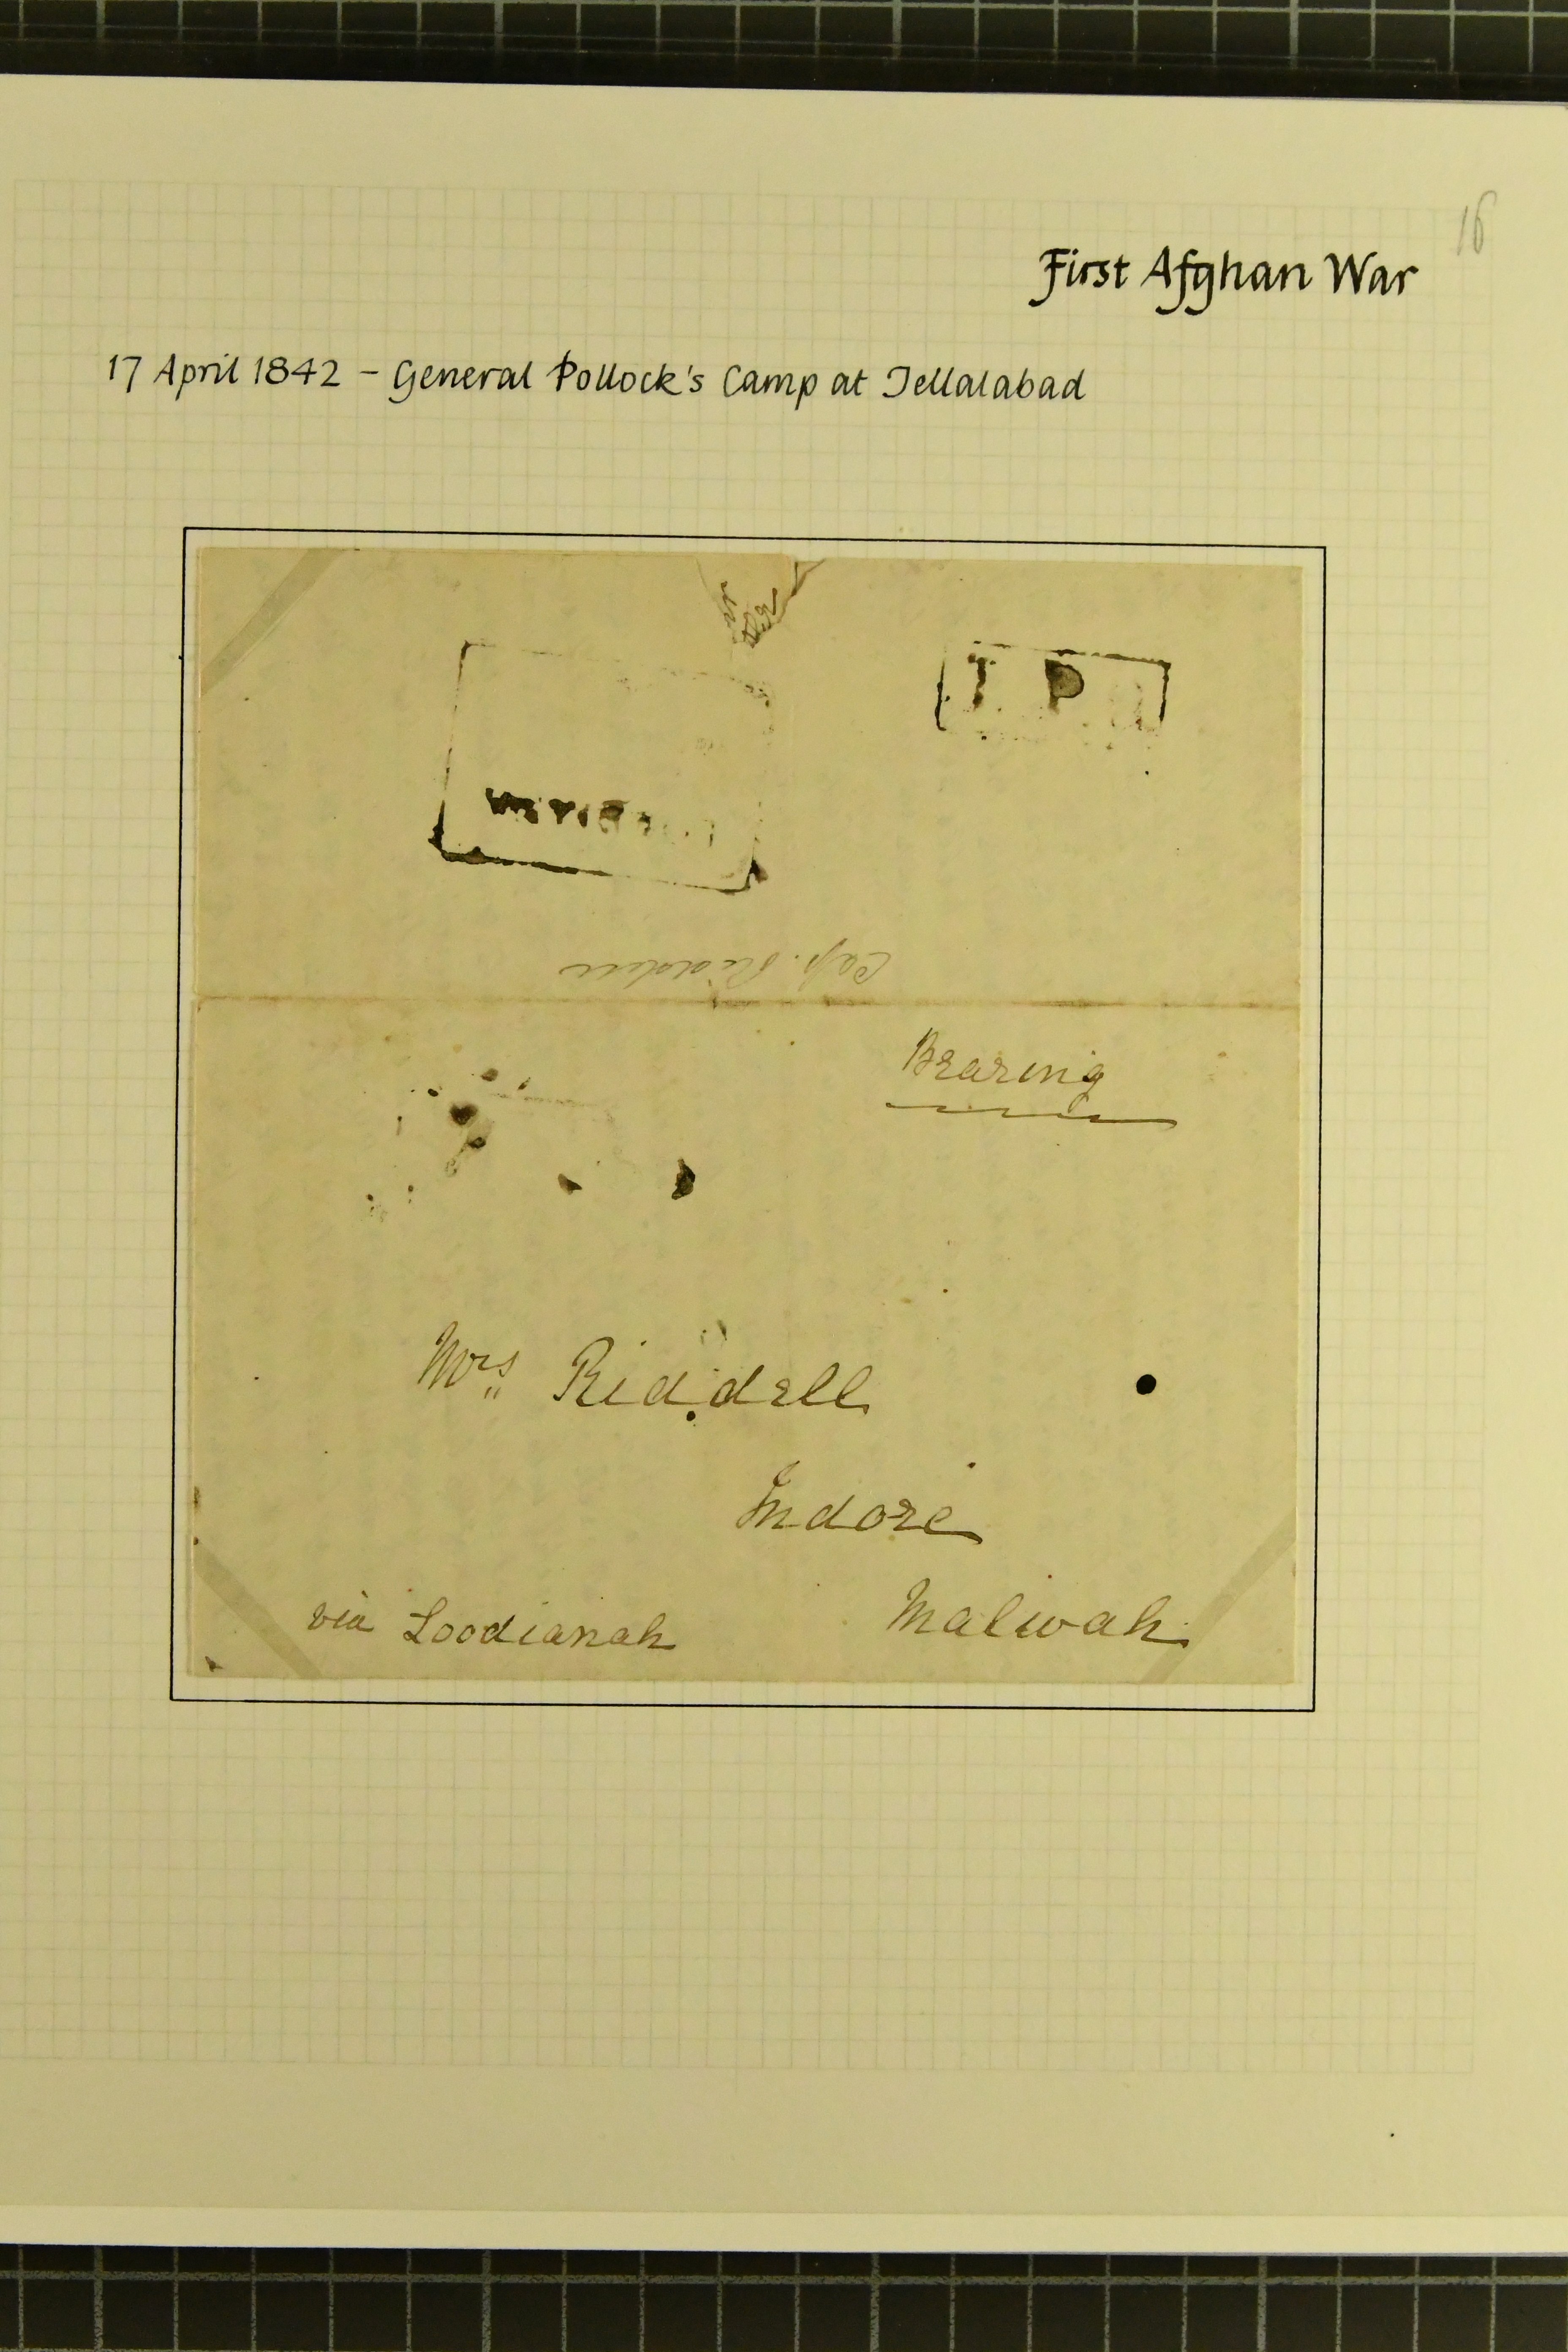 16
First Afghan War
17 April 1842 – General Pollock's Camp at Jellalabad
I P
Bearing
Mrs Riddell
Indore
Malwah
via Loodianah